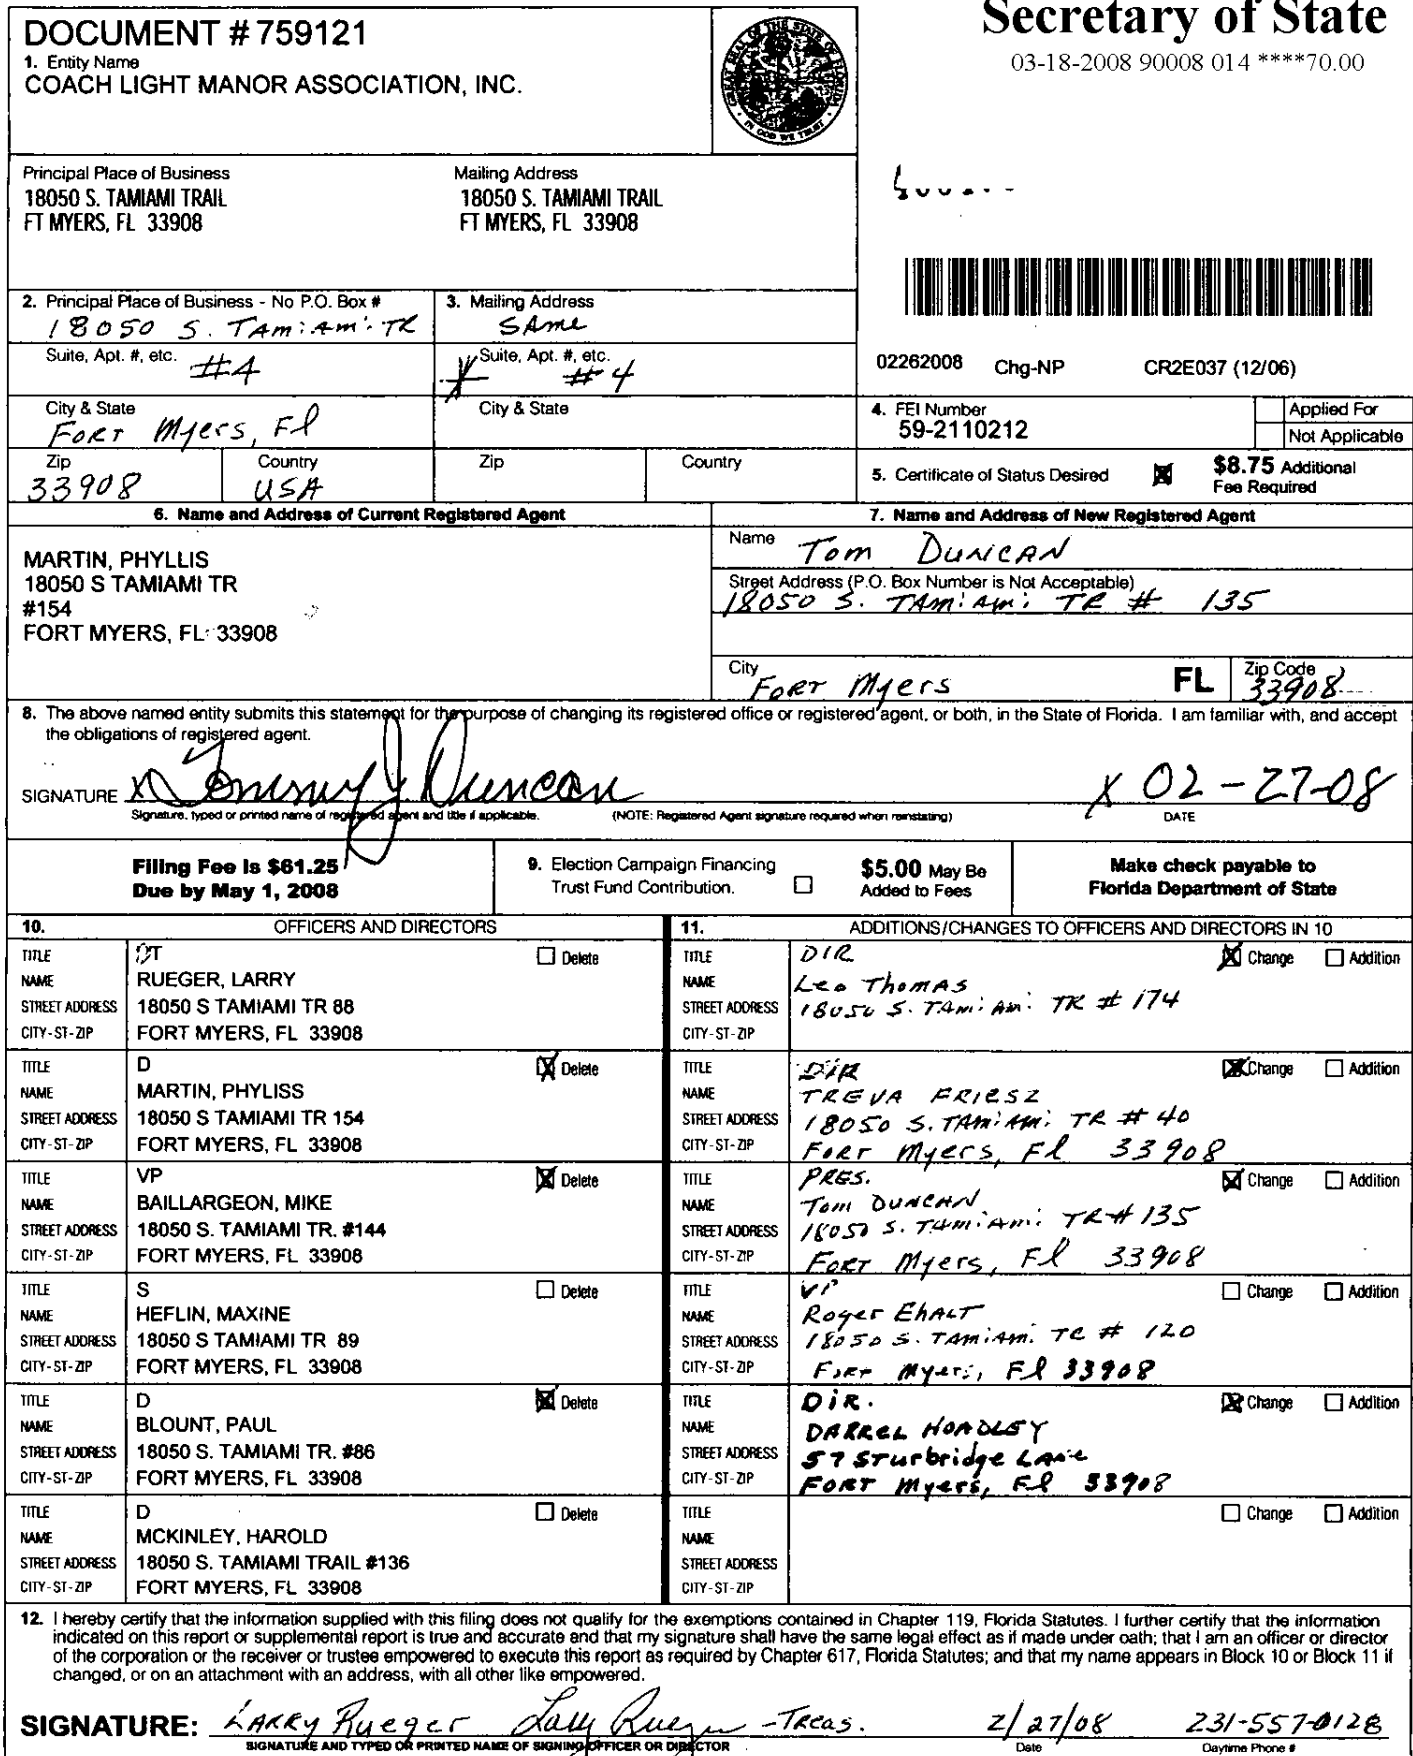 DOCUMENT # 759121
1. Entity Name
COACH LIGHT MANOR ASSOCIATION, INC.
Secretary of State
03-18-2008 90008 014 ****70.00
Principal Place of Business
18050 S. TAMIAMI TRAIL
FT MYERS, FL 33908
Mailing Address
18050 S. TAMIAMI TRAIL
FT MYERS, FL 33908
2. Principal Place of Business - No P.O. Box #
18050 S. TAmiAmi TR
3. Mailing Address
SAme
Suite, Apt. #, etc. #4
Suite, Apt. #, etc.
#4
City & State
Fort Myers, Fl
City & State
Zip
33908
Country
USA
Zip
Country
02262008 Chg-NP CR2E037 (12/06)
4. FEI Number
59-2110212
Applied For
Not Applicable
5. Certificate of Status Desired
$8.75 Additional
Fee Required
6. Name and Address of Current Registered Agent
MARTIN, PHYLLIS
18050 S TAMIAMI TR
#154
FORT MYERS, FL 33908
7. Name and Address of New Registered Agent
Name Tom DUNCAN
Street Address (P.O. Box Number is Not Acceptable)
18050 S. TAmiAmi TR # 135
City Fort Myers FL Zip Code 33908
8. The above named entity submits this statement for the purpose of changing its registered office or registered agent, or both, in the State of Florida. I am familiar with, and accept
the obligations of registered agent.
SIGNATURE x Tommy J Duncan x 02-27-08
Signature, typed or printed name of registered agent and title if applicable. (NOTE: Registered Agent signature required when reinstating) DATE
Filing Fee is $61.25
Due by May 1, 2008
9. Election Campaign Financing
Trust Fund Contribution.
$5.00 May Be
Added to Fees
Make check payable to
Florida Department of State
10. OFFICERS AND DIRECTORS
TITLE DT Delete
NAME RUEGER, LARRY
STREET ADDRESS 18050 S TAMIAMI TR 88
CITY-ST-ZIP FORT MYERS, FL 33908
TITLE D Delete
NAME MARTIN, PHYLISS
STREET ADDRESS 18050 S TAMIAMI TR 154
CITY-ST-ZIP FORT MYERS, FL 33908
TITLE VP Delete
NAME BAILLARGEON, MIKE
STREET ADDRESS 18050 S. TAMIAMI TR. #144
CITY-ST-ZIP FORT MYERS, FL 33908
TITLE S Delete
NAME HEFLIN, MAXINE
STREET ADDRESS 18050 S TAMIAMI TR 89
CITY-ST-ZIP FORT MYERS, FL 33908
TITLE D Delete
NAME BLOUNT, PAUL
STREET ADDRESS 18050 S. TAMIAMI TR. #86
CITY-ST-ZIP FORT MYERS, FL 33908
TITLE D Delete
NAME MCKINLEY, HAROLD
STREET ADDRESS 18050 S. TAMIAMI TRAIL #136
CITY-ST-ZIP FORT MYERS, FL 33908
11. ADDITIONS/CHANGES TO OFFICERS AND DIRECTORS IN 10
TITLE DIR Change Addition
NAME Leo Thomas
STREET ADDRESS 18050 S. TAmiAmi TR # 174
CITY-ST-ZIP
TITLE DIR Change Addition
NAME TREVA FRIESZ
STREET ADDRESS 18050 S. TAmiAmi TR # 40
CITY-ST-ZIP Fort Myers, Fl 33908
TITLE PRES. Change Addition
NAME Tom DUNCAN
STREET ADDRESS 18050 S. TAmiAmi TR # 135
CITY-ST-ZIP Fort Myers, Fl 33908
TITLE VP Change Addition
NAME Roger EhAlT
STREET ADDRESS 18050 S. TAmiAmi TR # 120
CITY-ST-ZIP Fort Myers, Fl 33908
TITLE DiR. Change Addition
NAME DARREL HOADLEY
STREET ADDRESS 57 Sturbridge Lane
CITY-ST-ZIP FORT Myers, Fl 33908
TITLE Change Addition
NAME
STREET ADDRESS
CITY-ST-ZIP
12. I hereby certify that the information supplied with this filing does not qualify for the exemptions contained in Chapter 119, Florida Statutes. I further certify that the information
indicated on this report or supplemental report is true and accurate and that my signature shall have the same legal effect as if made under oath; that I am an officer or director
of the corporation or the receiver or trustee empowered to execute this report as required by Chapter 617, Florida Statutes; and that my name appears in Block 10 or Block 11 if
changed, or on an attachment with an address, with all other like empowered.
SIGNATURE: LARRY Rueger Larry Rueger - Treas. 2/27/08 231-557-0128
SIGNATURE AND TYPED OR PRINTED NAME OF SIGNING OFFICER OR DIRECTOR Date Daytime Phone #